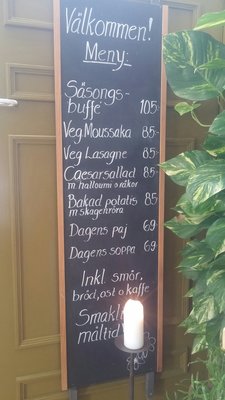 Välkommen!
Meny:
Säsongs-
buffe 105:-
Veg Moussaka 85:-
Veg Lasagne 85:-
Caesarsallad 85:-
m. halloumi o räkor
Bakad potatis 85:-
m skagenröra
Dagens paj 69:-
Dagens soppa 69:-
Inkl. smör,
bröd, ost o kaffe
måltid